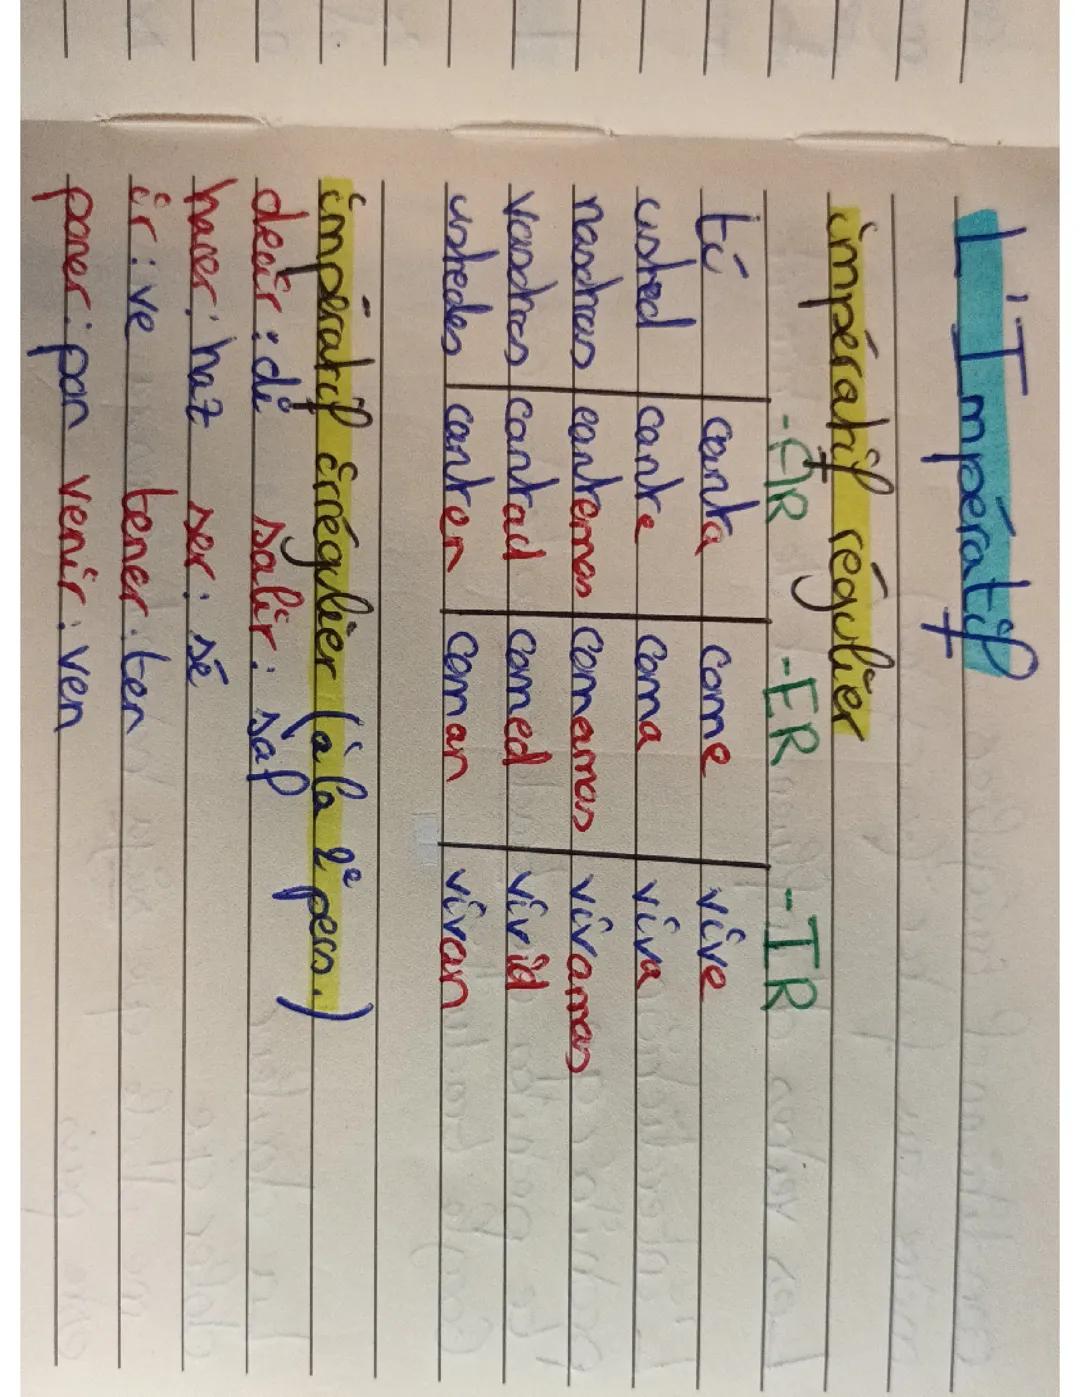 L'Impératif
impératif régulier
-AR -ER -IR
tú canta come vive
usted cante coma viva
nosotros cantemos comamos vivamos
vosotros cantad comed vivid
ustedes canten coman vivan
impératif irrégulier (à la 2e pers.)
decir: di salir: sal
hacer: haz ser: sé
ir: ve tener: ten
poner: pon venir: ven